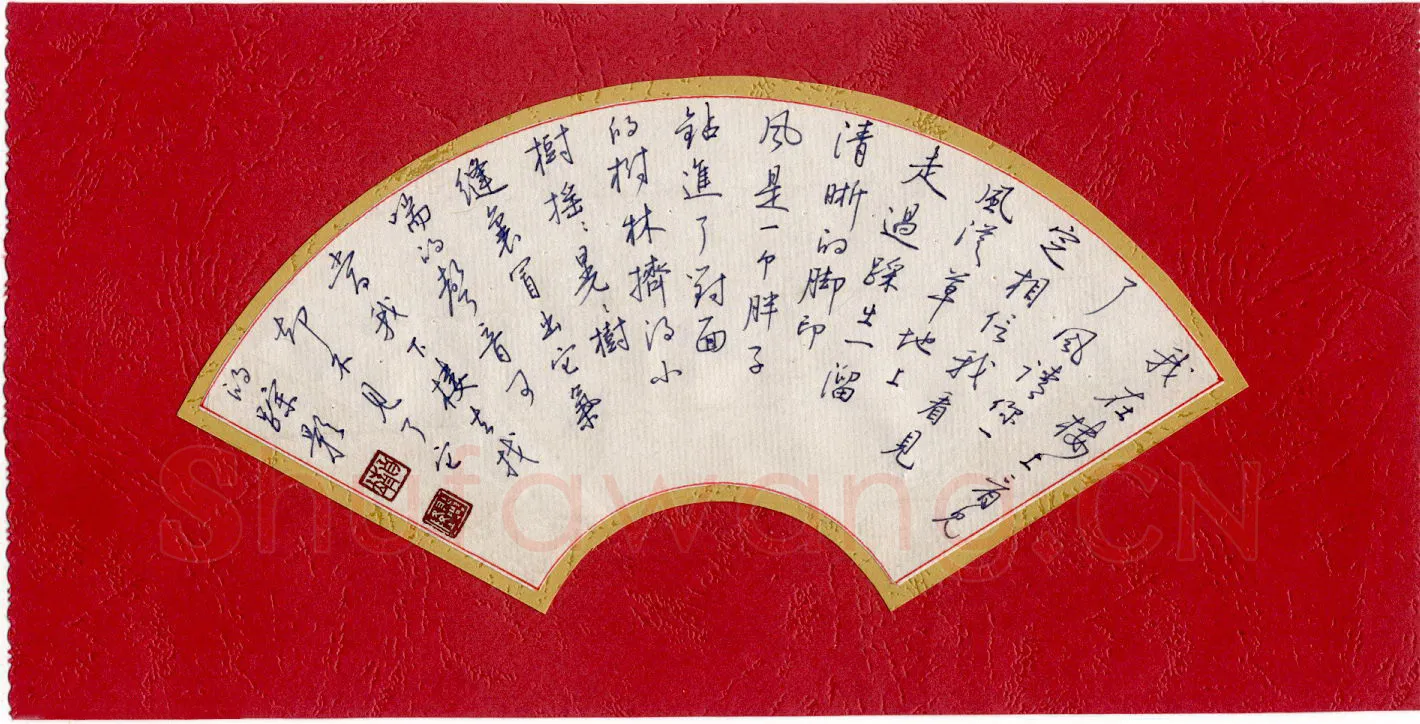 我在樓上看見
了風请你一
定相信我看見
風從草地上
走過踩出一溜
清晰的脚印
风是一个胖子
鉆進了對面
的树林擠得小
樹摇々晃々樹
縫裏冒出它氣
喘的聲音可
當我下樓去找
却不見了它
的踪影
Shufawang.CN